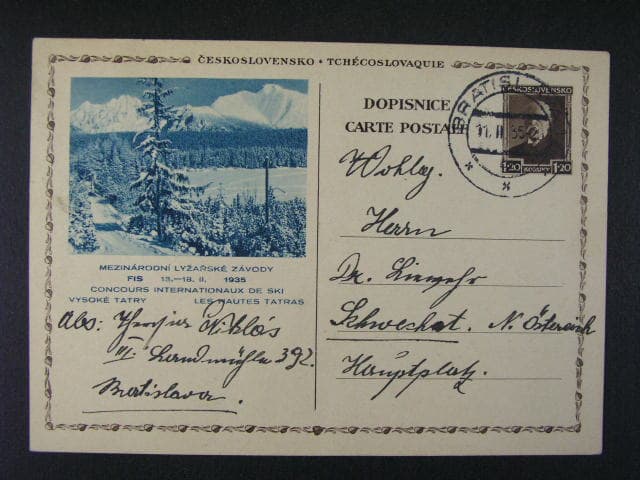 ČESKOSLOVENSKO • TCHÉCOSLOVAQUIE
DOPISNICE
CARTE POSTALE
BRATISL
11. II. 35
ČESKOSLOVENSKO
1·20 KORUNY 1·20
MEZINÁRODNÍ LYŽAŘSKÉ ZÁVODY
FIS 13.—18. II. 1935
CONCOURS INTERNATIONAUX DE SKI
VYSOKÉ TATRY LES HAUTES TATRAS
Abs: Niklós
VII. Landmühle 392.
Bratislava.
Wohlg.
Herrn
Dr. Liewehr
Schwechat. N. Östereich
Hauptplatz.